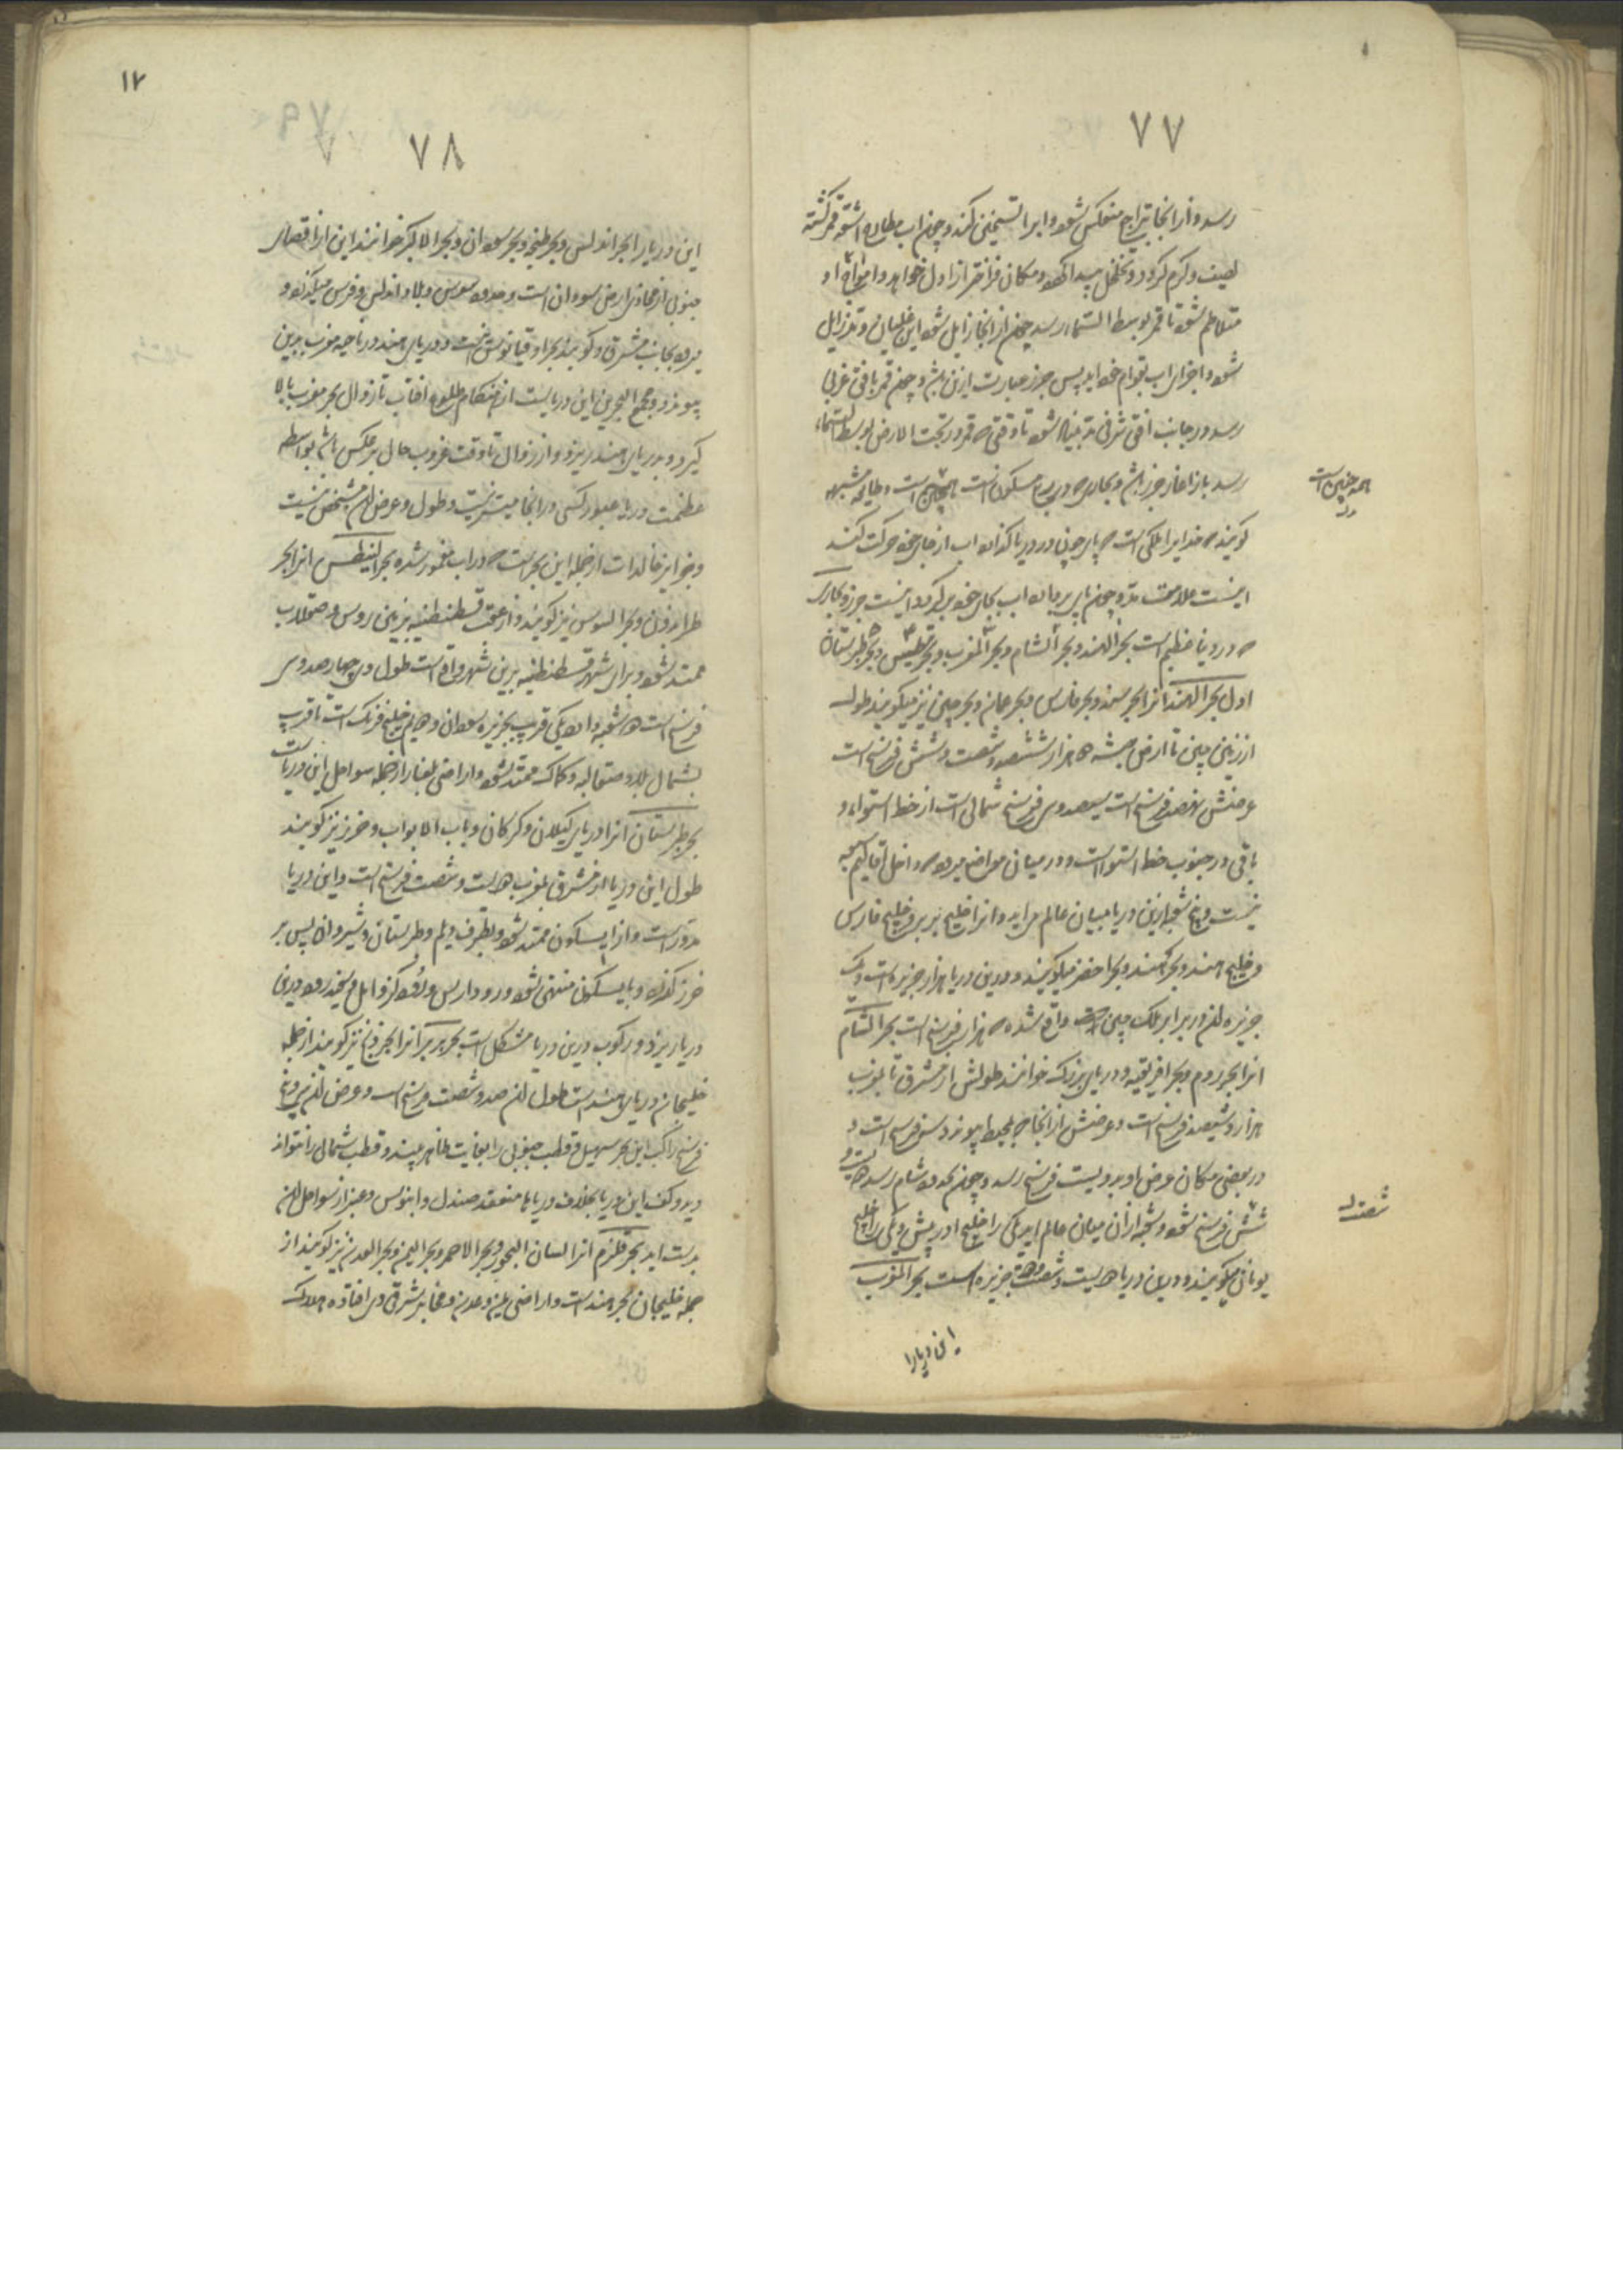 ۷۷
رسد و از انجا بتراجع منعکس شود و ابرا تسخین کند و چون اب مطارح اشعه قمر کشته
لطیف و کرم کردد و تخلخل پیدا کند و مکان فراختر از اول خواهد و امواج او
متلاطم شود تا قمر بوسط السماء رسد چون از انجا زایل شود این غلیان و تد زایل
شود و اجزای اب بقوام خود اید پس جزر عبارت ازین باشد و چون قمر بافق غربی
رسد در جانب افق شرقی مد پیدا شود تا وقتی که قمر در تحت الارض بوسط السماء
رسد باز اغاز جزر باشد و بحاری که در ربع مسکون است همچنین است و طایفه مشبهه
همه چنین است
کویند که خدایرا ملکی است که پای چون در دریا کذارد اب از جای خود حرکت کند
اینست علامت مد و چون پای بردارد اب بجای خود بر کردد اینست جزر و بحاری
که در دنیا عظیم است بحر الهند و بحر الشام و بحر المغرب و بحر نیطس و بحر طبرستان
اول بحر الهند انرا بحر سند و بحر فارس و بحر عمان و بحر چین نیز میکویند طول
از زمین چین تا ارض حبشه هزار ششصد و شصت و شش فرسنک است
عرضش نهصد فرسنک است سیصد و سی فرسنک شمالی است از خط استواء و
باقی در جنوب خط استوا است و در میان مواضع میرود که داخل اقالیم سبعه
نیست و پنج شعبه ازین دریا میان عالم در اید و انرا خلیج بربر و خلیج فارس
و خلیج هند و بحر هند و بحر اخضر میکویند و درین دریا هزار جزیره است و یک
جزیره ان در برابر ملک چین است واقع شده که هزار فرسنک است بحر الشام
انرا بحر روم و بحر افریقیه و دریای بزرک خوانند طولش از مشرق تا بمغرب
هزار و سیصد فرسنک است و عرضش از انجا که بمحیط پیوندد سی فرسنک است و
در بعضی مکان عرض او بدویست فرسنک رسد و چون بحدود شام رسد
شصت
شش فرسنک شود و شعبه ازان میان عالم اید یکی را خلیج ادریس و یکی را خلیج
یونانی میکویند و درین دریا دویست و شصت و هفت جزیره است بحر المغرب
این دریا را
۱۷
۷۸
این دریا را بحر اندلس و بحر طنجه و بحر سودان و بحر الاکبر خوانند این از اقصای
جنوبی از محاذی ارض سودان است و حدود سوس و بلاد اندلس و فرنس میکذرد و
میرود بجانب مشرق و کویند بحر اوقیانوس اینست و دریای هند در ناحیه مغرب بدین
پیوندد و مجمع البحرین این دریاست از هنکام طلوع افتاب تا زوال بحر مغرب بالا
کیرد و بدریای هند ریزد و از زوال تا وقت غروب حال برعکس باشد بواسطه
عظمت دریا عبور کسی در انجا میسر نیست و طول و عرض ان مشخص نیست
و جزایر خالدات از جمله این بحر است که در اب مغمور شده بحر النیطس انرا بحر
طرابزون و بحر السوس نیز کویند و از عقب قسطنطنیه بزمین روس و صقلاب
ممتد شود و برای شهر قسطنطنیه برین شهر واقع است طول وی چهار صد و سی
فرسنک است دو شعبه دارد یکی قریب بجزیره سودان و دیم خلیج فرنک است تا قرب
بشمال بلاد صقالبه و کماک ممتد شود و اراضی بلغار از جمله سواحل این دریاست
بحر طبرستان انرا دریای کیلان و کرکان و باب الابواب و خزر نیز کویند
طول این دریا از مشرق بمغرب دویست و شصت فرسنک است و این دریا
مدور است و از ابسکون ممتد شود بطرف دیلم و طبرستان و شیروان پس بر
خزر کذرد و بابسکون منتهی شود و رود ارس و رود کر و اتل و سفید رود درین
دریا ریزد و رکوب درین دریا مشکل است بحر بربر انرا بحر زنج نیز کویند از جمله
خلیجان دریای هند است طول ان صد و شصت فرسنک است و عرض ان سی و پنج
فرسنک راکب این بحر سهیل و قطب جنوبی را بغایت ظاهر بیند و قطب شمالی را نتواند
دید و کف این دریا بخلاف دریاها منعقد صندل و ابنوس و عنبر از سواحل ان
بدست اید بحر قلزم انرا لسان البحر و بحر الاحمر و بحر الیمن و بحر العدن نیز کویند از
جمله خلیجان بحر هند است و اراضی یمن و عدن و مخا بر شرقی وی افتاده